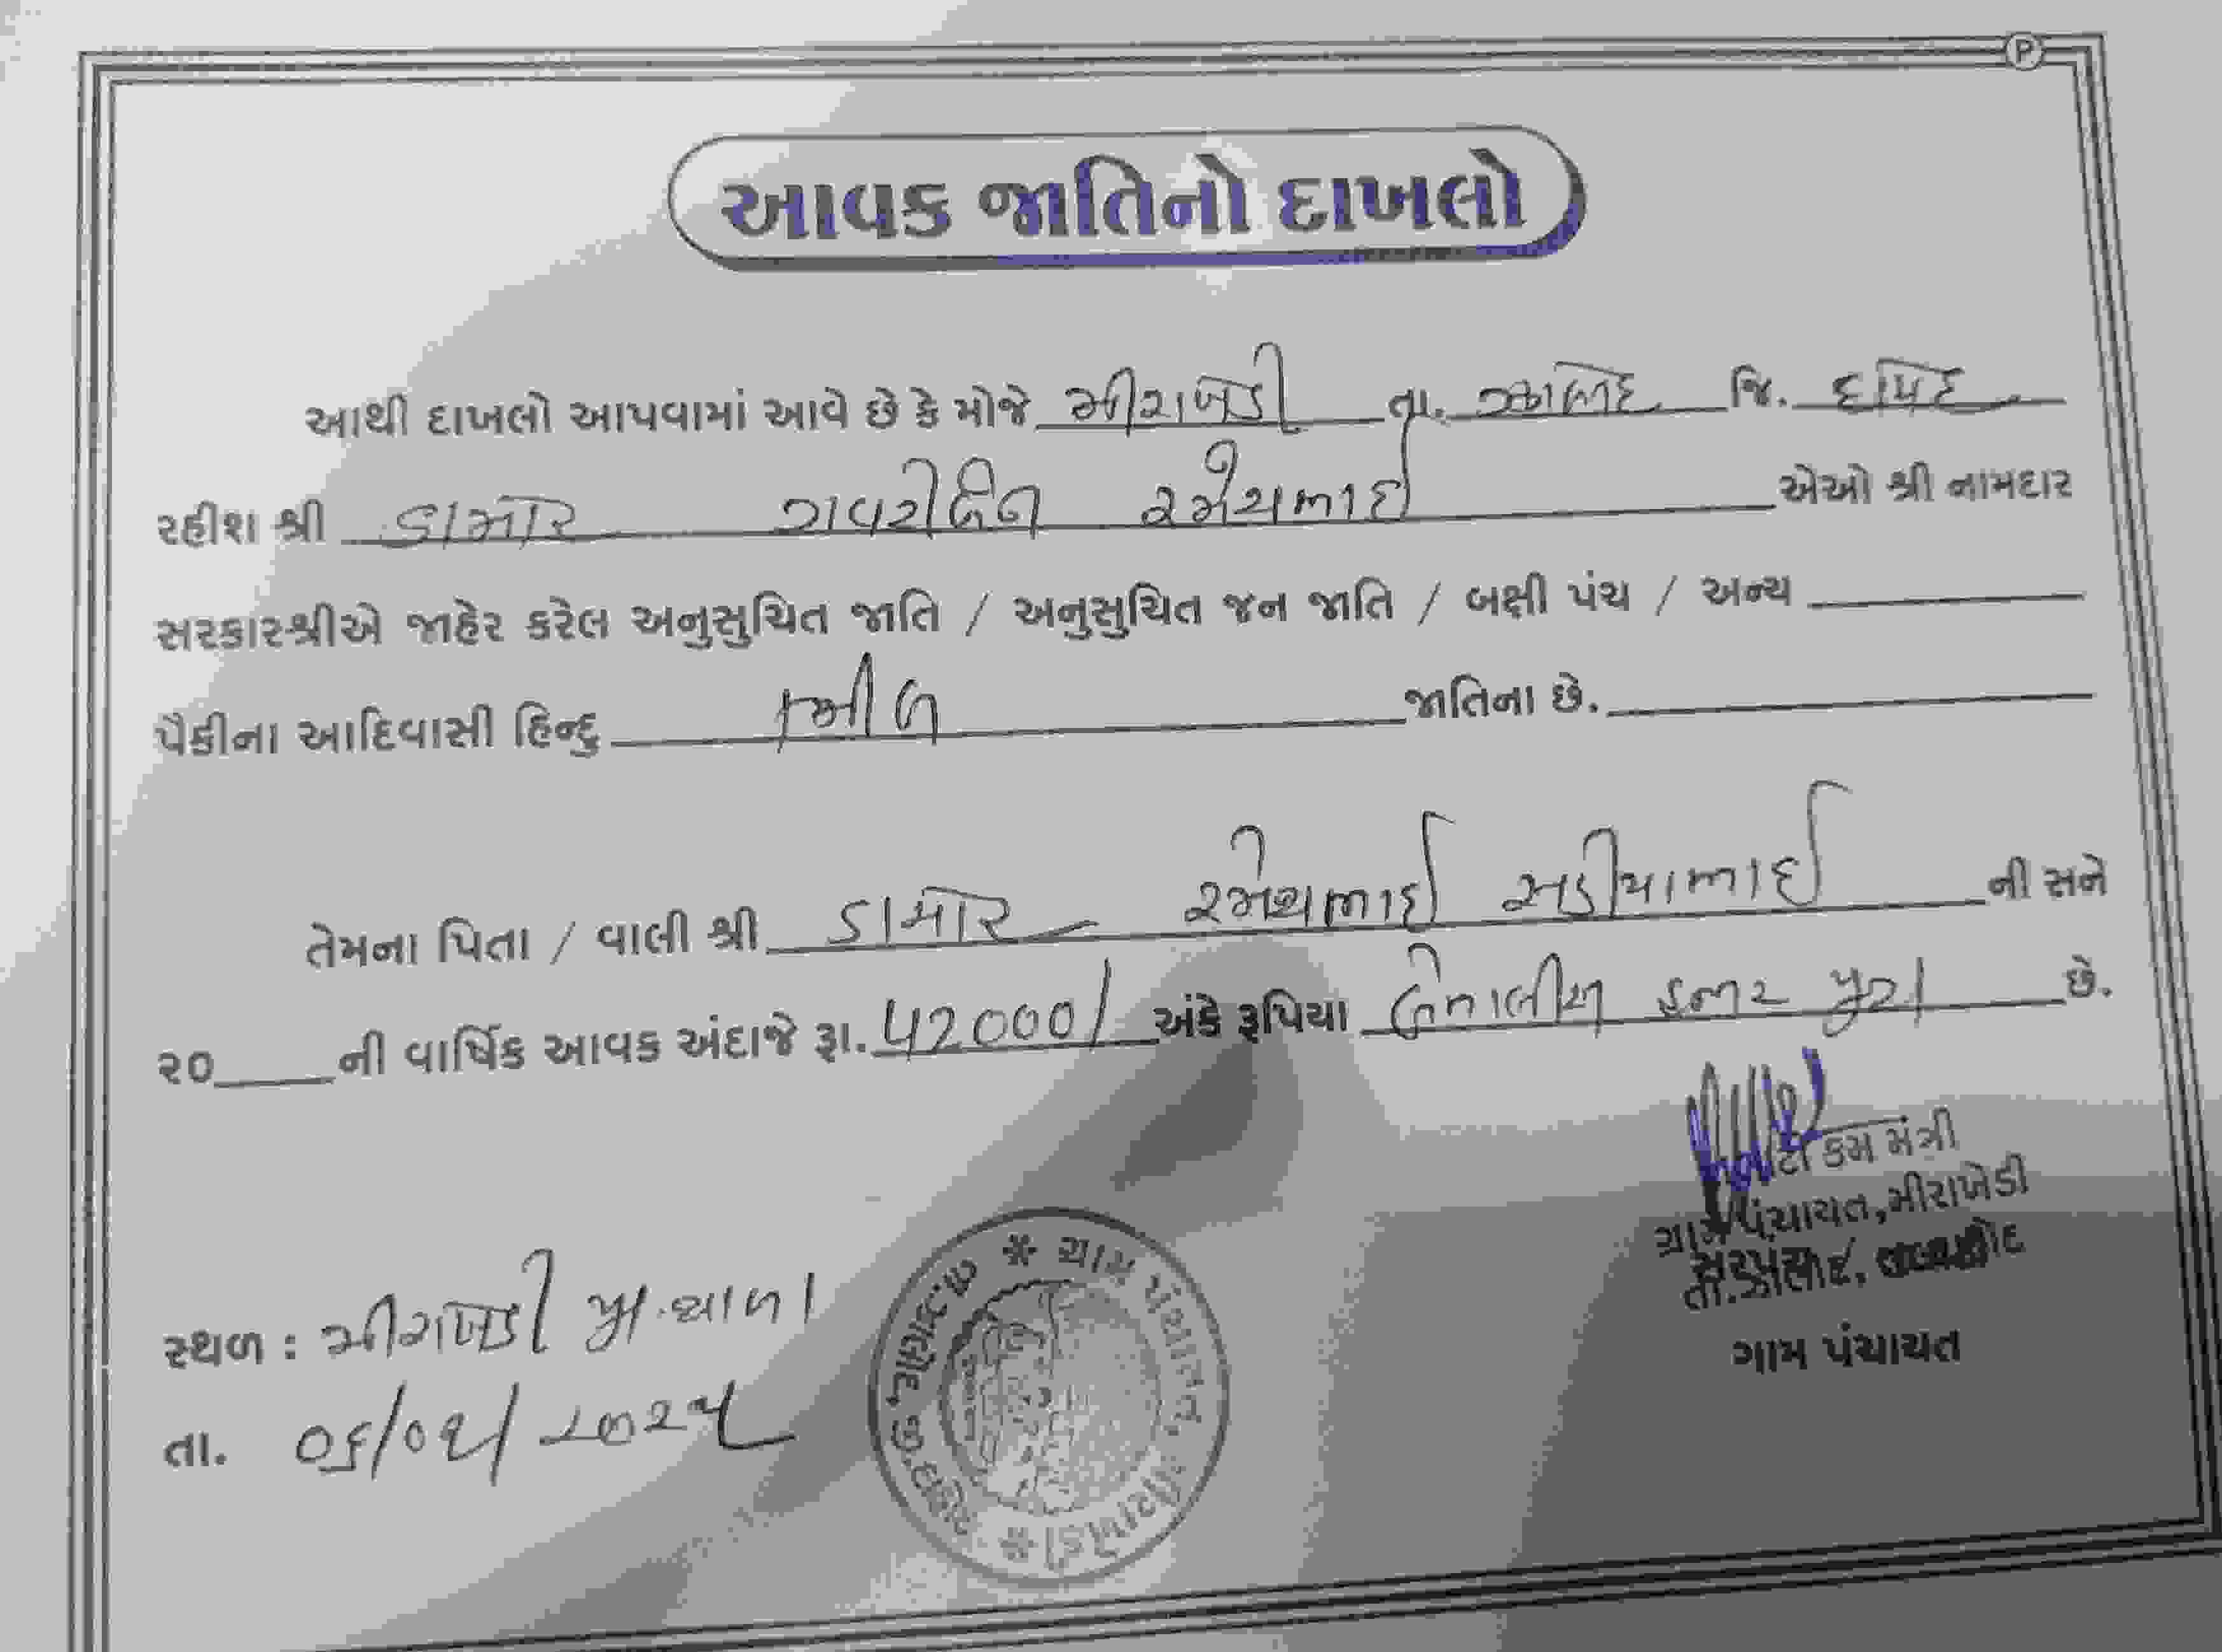 આવક જાતિનો દાખલો
આથી દાખલો આપવામાં આવે છે કે મોજે મીરાખેડી તા. ઝાલોદ જિ. દાહોદ
રહીશ શ્રી ડામોર રમેશભાઈ એઓ શ્રી નામદાર
સરકારશ્રીએ જાહેર કરેલ અનુસુચિત જાતિ / અનુસુચિત જન જાતિ / બક્ષી પંચ / અન્ય
પૈકીના આદિવાસી હિન્દુ ભીલ જાતિના છે.
તેમના પિતા / વાલી શ્રી ડામોર રમેશભાઈ ની સને
૨૦ ની વાર્ષિક આવક અંદાજે રૂા. 42000/ અંકે રૂપિયા બેતાલીસ હજાર પુરા છે.
તલાટી કમ મંત્રી
ગ્રામ પંચાયત, મીરાખેડી
તા. ઝાલોદ,
ગામ પંચાયત
સ્થળ : મીરાખેડી પ્રા. શાળા
તા. ૦૬/૦૧/૨૦૨૫
ગ્રામ પંચાયત, મીરાખેડી * તા. ઝાલોદ, જી. દાહોદ *